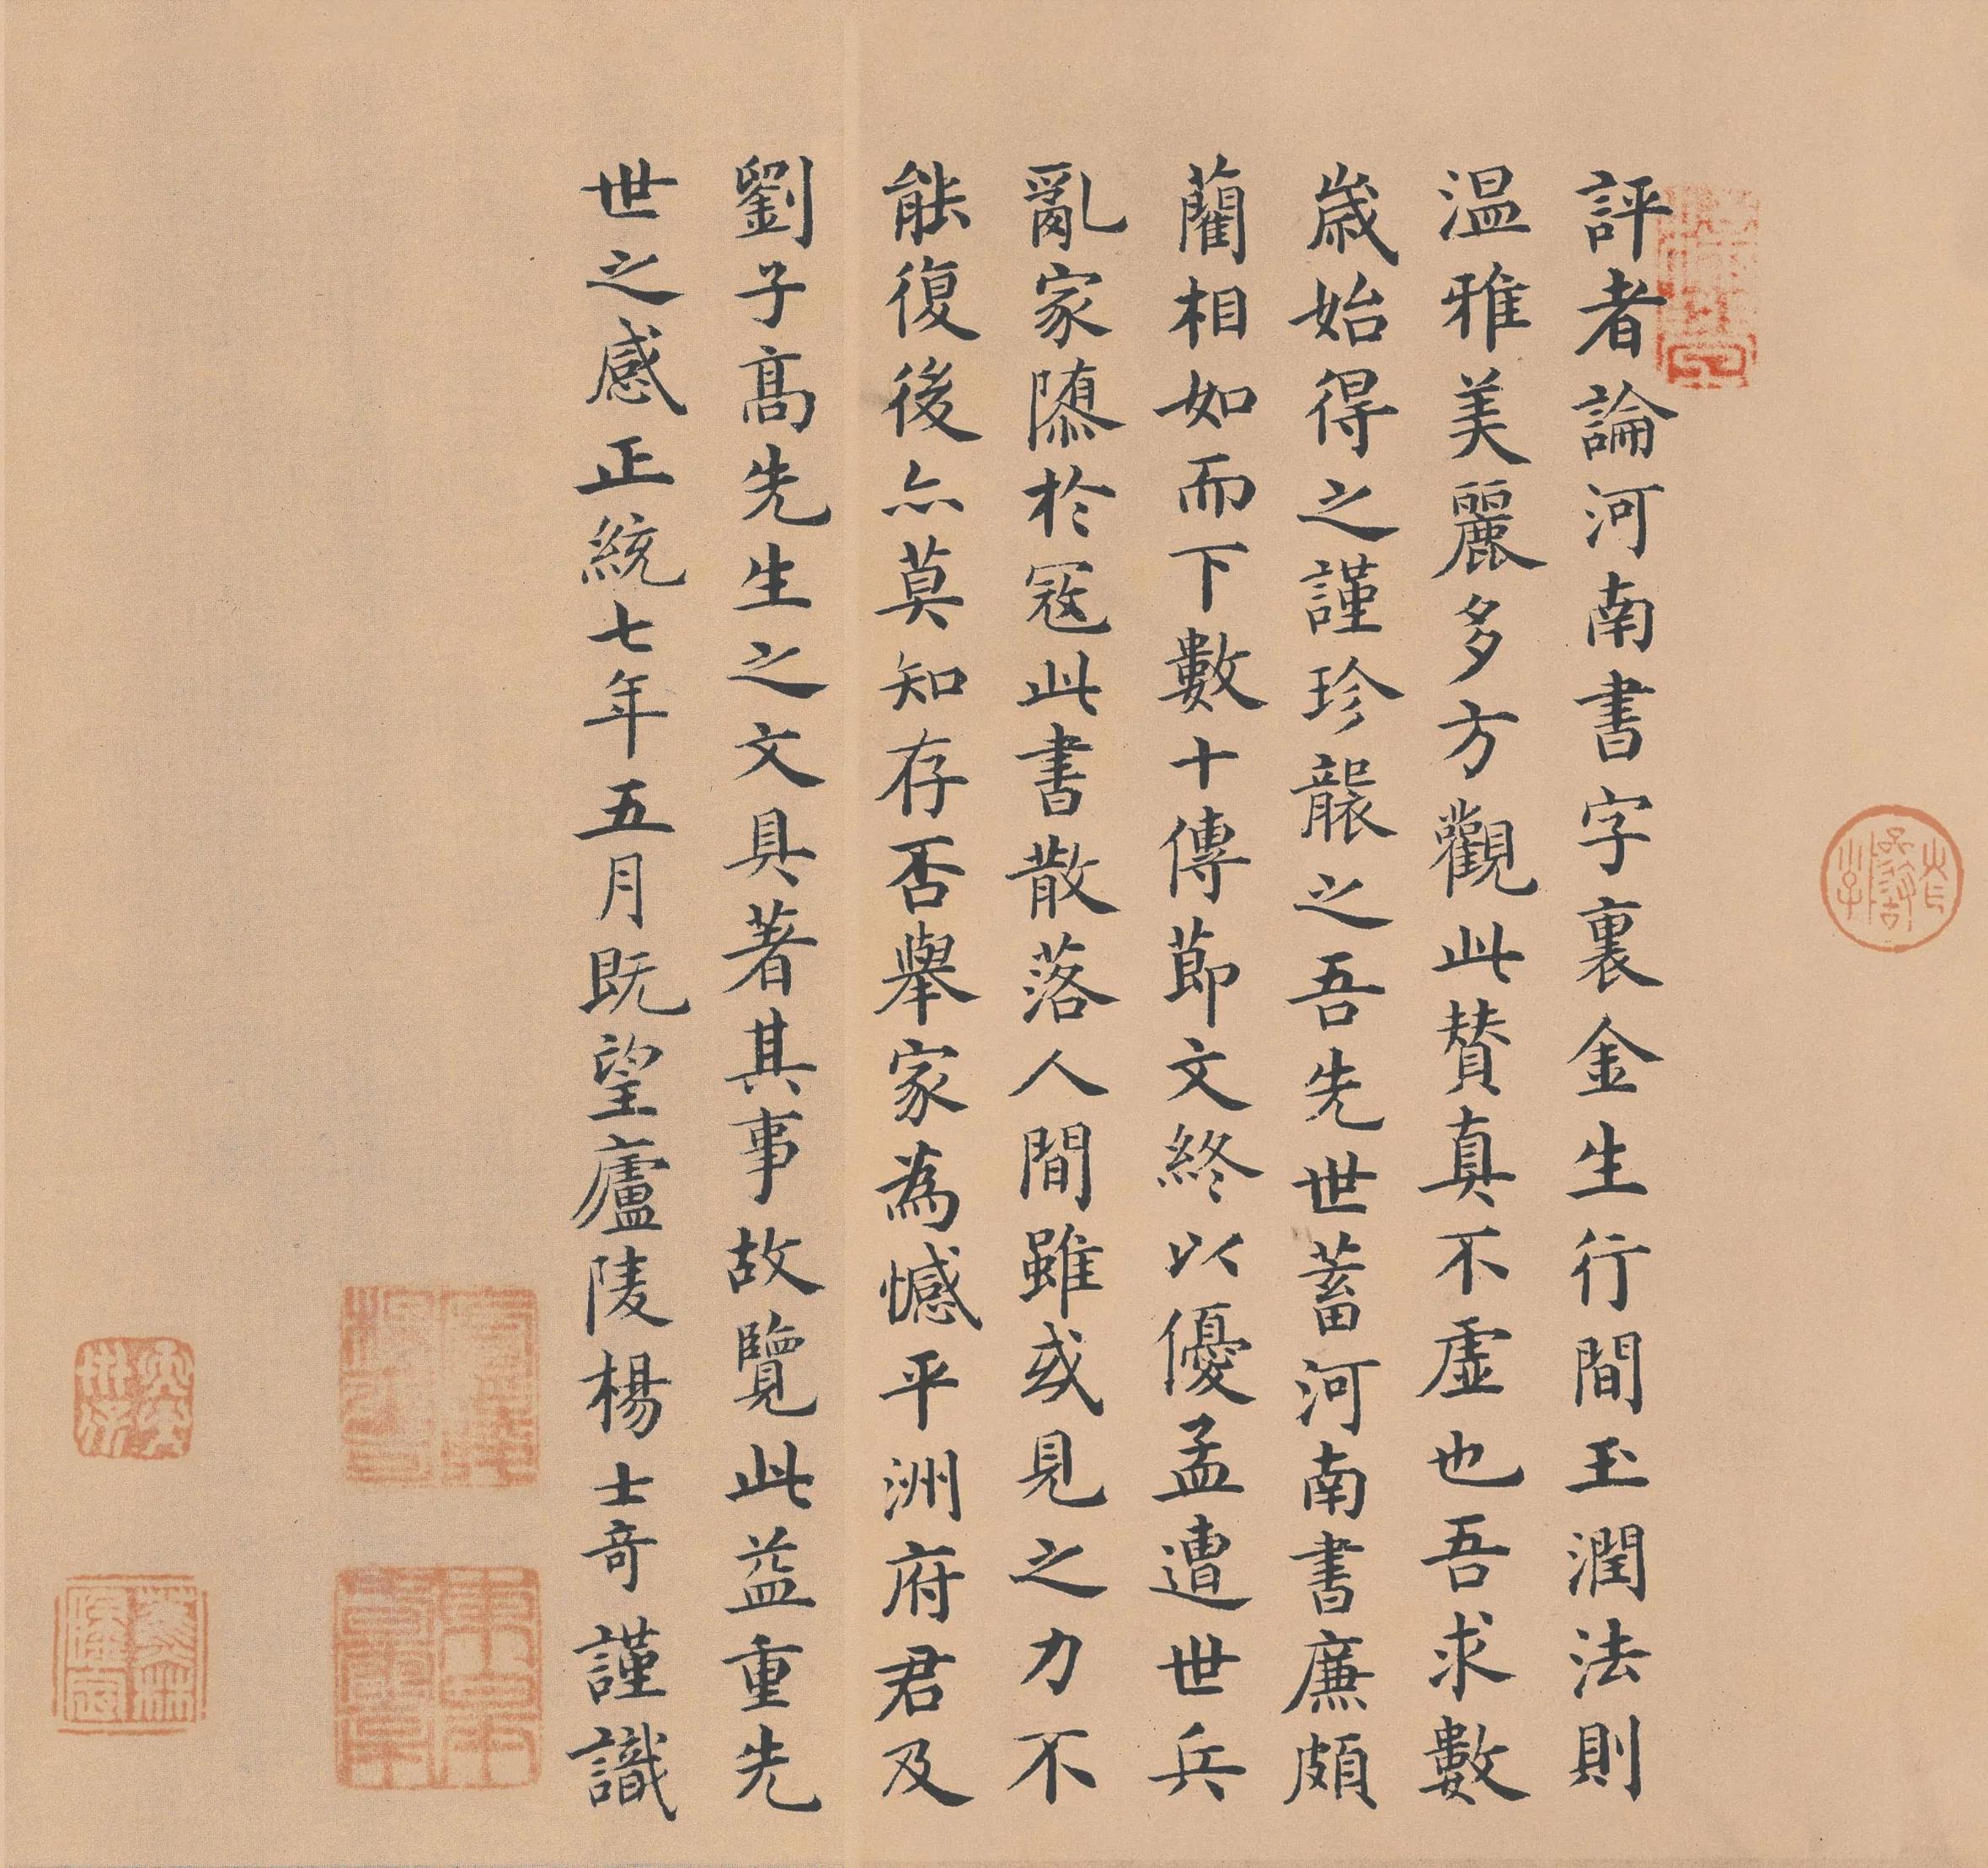 評者論河南書字裏金生行間玉潤法則
温雅美麗多方觀此賛真不虛也吾求數
歲始得之謹珍襲之吾先世蓄河南書廉頗
藺相如而下數十傳節文終以優孟遭世兵
亂家隳於寇此書散落人間雖或見之力不
能復後亦莫知存否舉家為憾平洲府君及
劉子高先生之文具著其事故覽此益重先
世之感正統七年五月既望廬陵楊士奇謹識